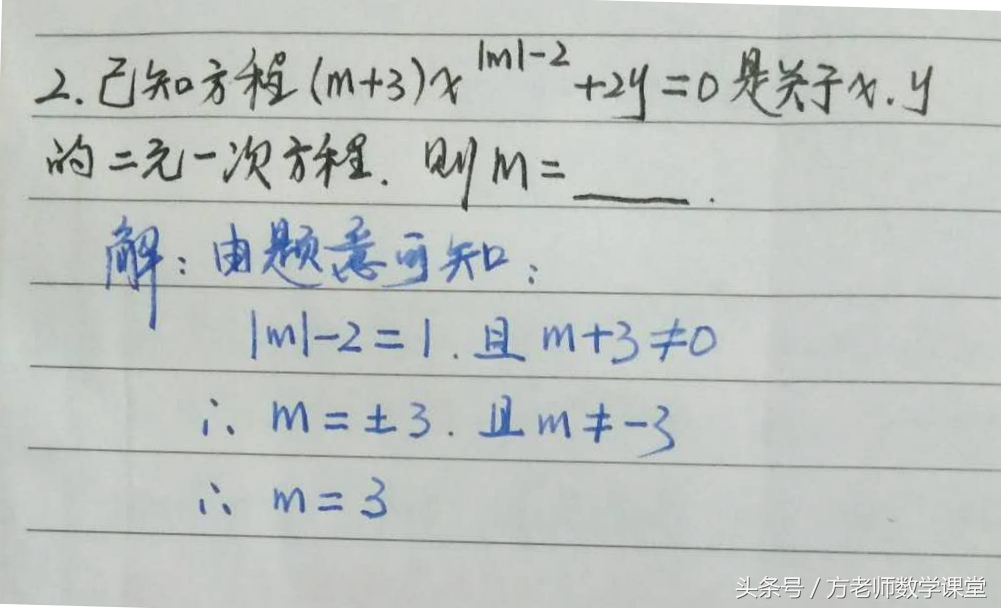 2.已知方程(m+3)x^{|m|-2}+2y=0是关于x.y
的二元一次方程.则m=____.
解:由题意可知:
|m|-2=1.且m+3≠0
∴m=±3.且m≠-3
∴m=3
头条号/方老师数学课堂